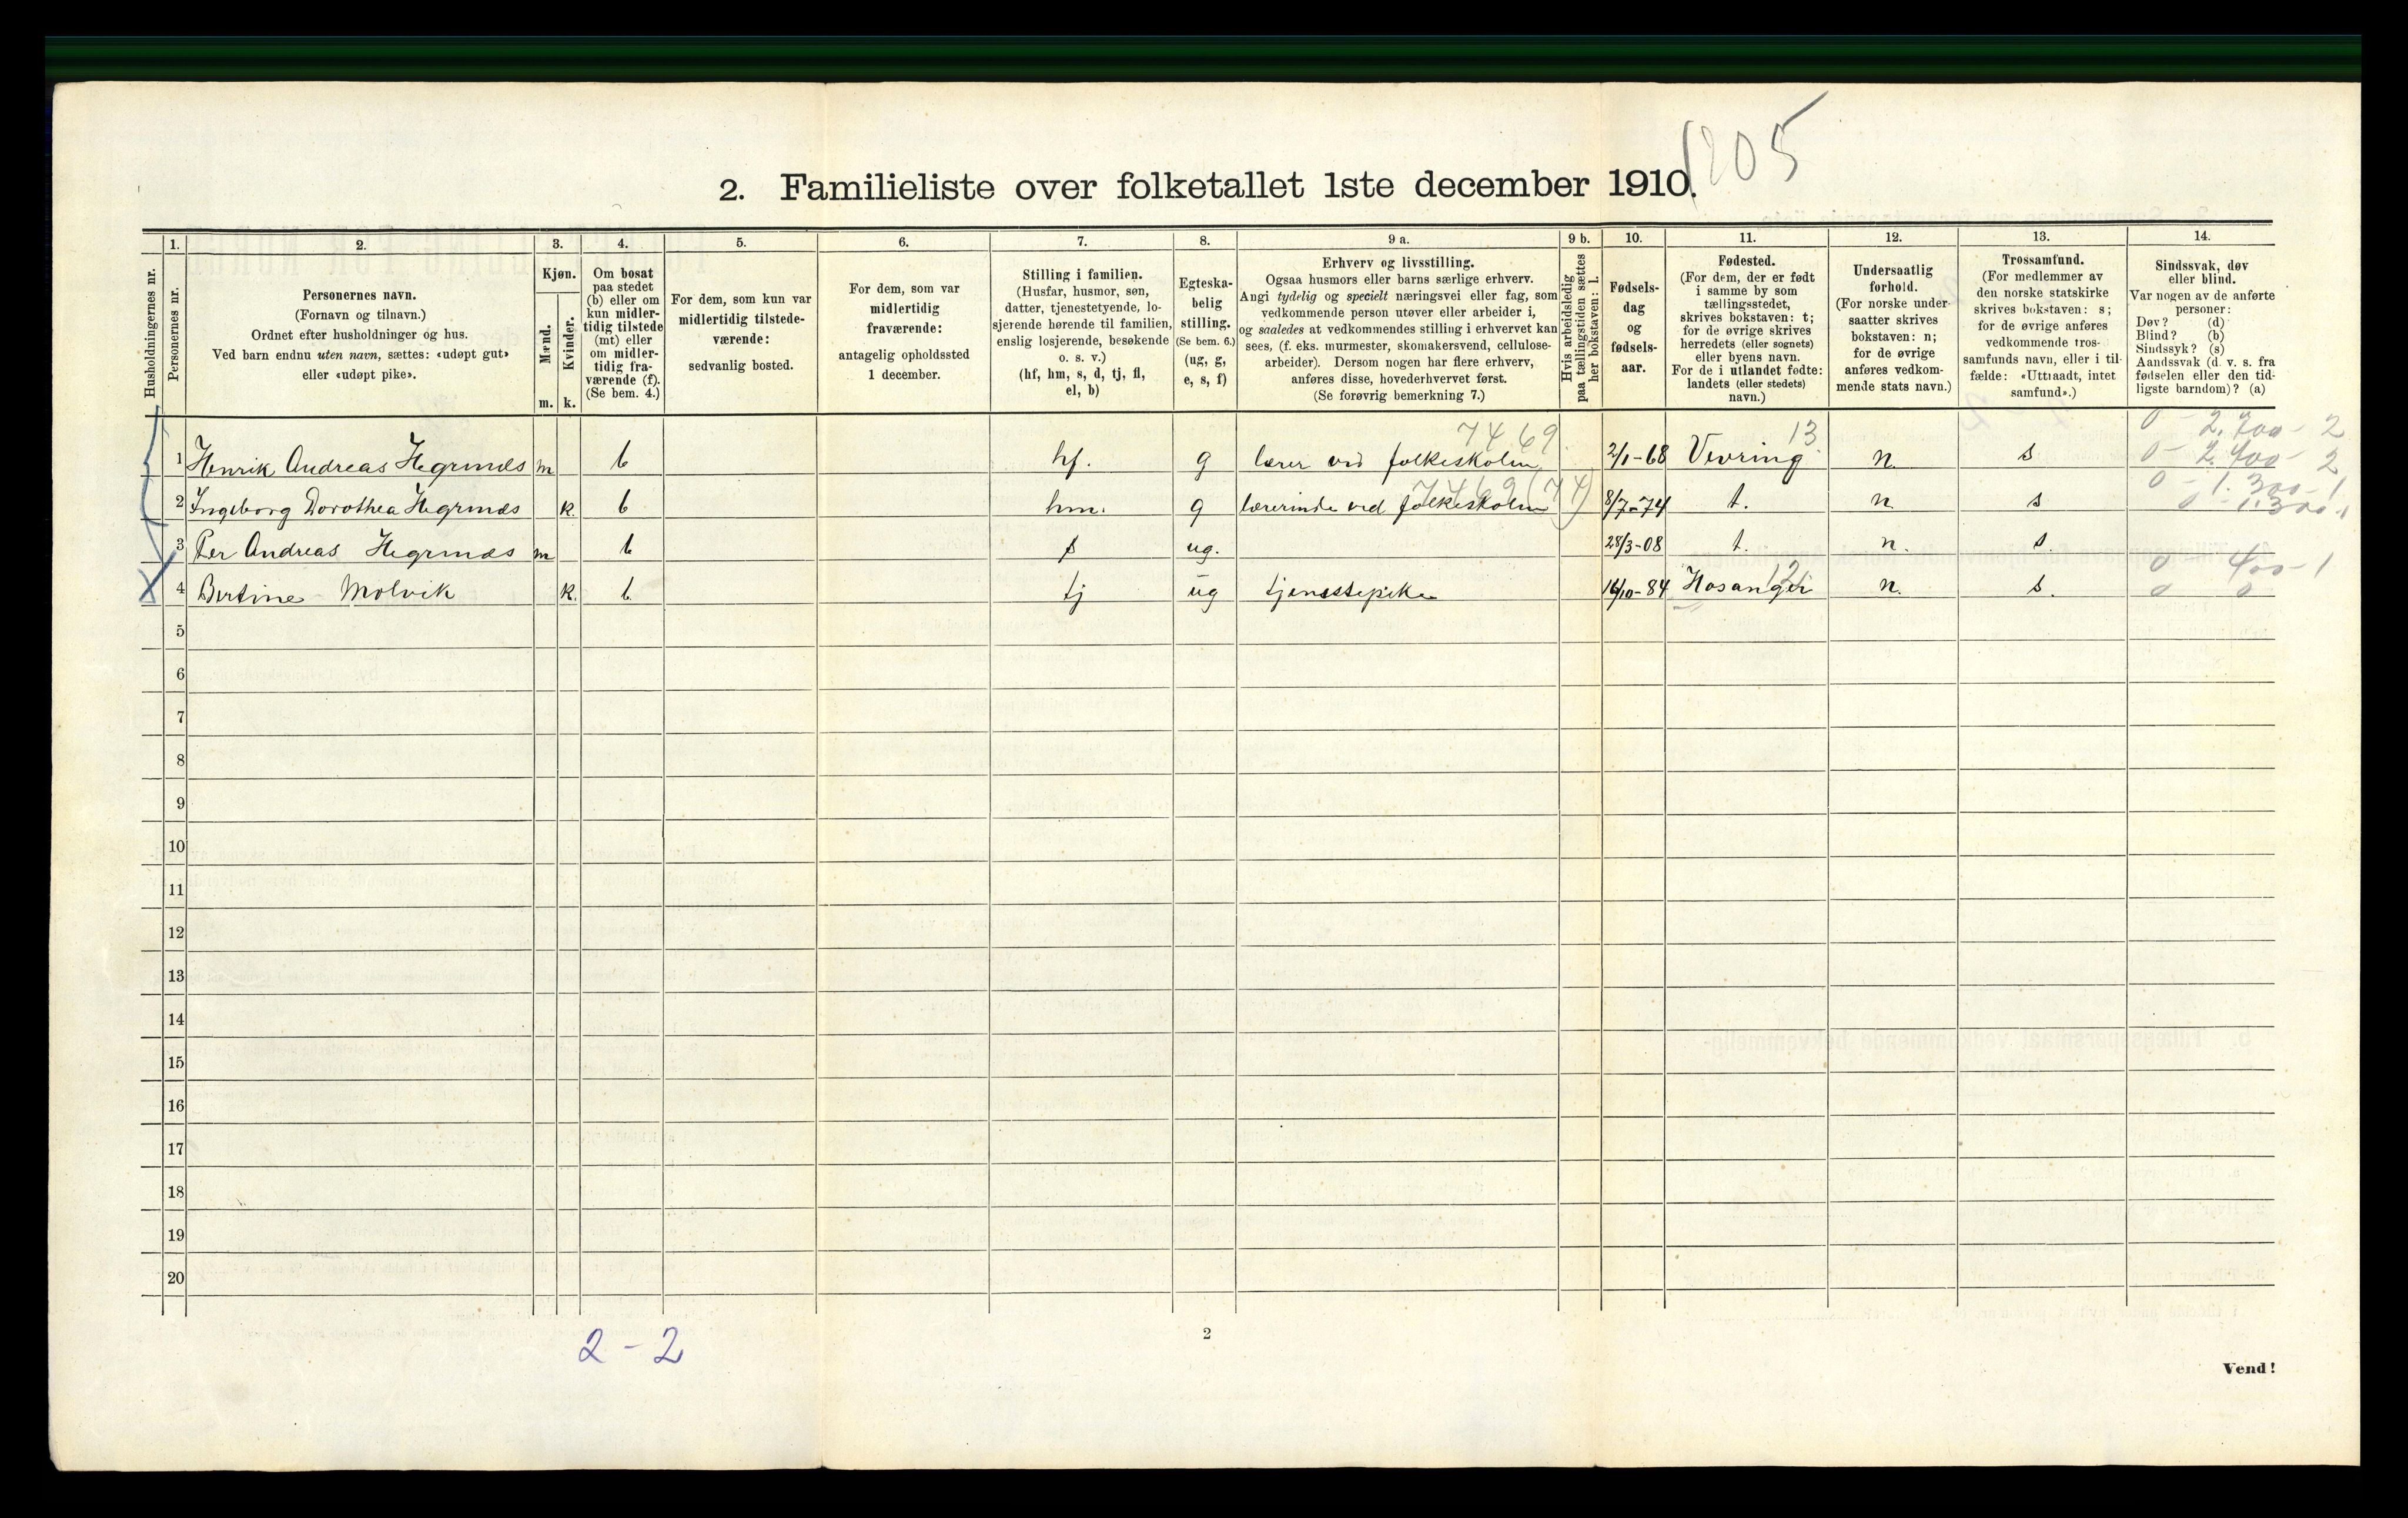 1205
2. Familieliste over folketallet 1ste december 1910.
Husholdningernes nr.
1. Personernes nr.
2. Personernes navn.
(Fornavn og tilnavn.)
Ordnet efter husholdninger og hus.
Ved barn endnu uten navn, sættes: «udøpt gut»
eller «udøpt pike».
3. Kjøn.
Mænd. m.
Kvinder. k.
4. Om bosat
paa stedet
(b) eller om
kun midler-
tidig tilstede
(mt) eller
om midler-
tidig fra-
værende (f).
(Se bem. 4.)
5. For dem, som kun var
midlertidig tilstede-
værende:
sedvanlig bosted.
6. For dem, som var
midlertidig
fraværende:
antagelig opholdssted
1 december.
7. Stilling i familien.
(Husfar, husmor, søn,
datter, tjenestetyende, lo-
sjerende hørende til familien,
enslig losjerende, besøkende
o. s. v.)
(hf, hm, s, d, tj, fl,
el, b)
8. Egteska-
belig
stilling.
(Se bem. 6.)
(ug, g,
e, s, f)
9 a. Erhverv og livsstilling.
Ogsaa husmors eller barns særlige erhverv.
Angi tydelig og specielt næringsvei eller fag, som
vedkommende person utøver eller arbeider i,
og saaledes at vedkommendes stilling i erhvervet kan
sees, (f. eks. murmester, skomakersvend, cellulose-
arbeider). Dersom nogen har flere erhverv,
anføres disse, hovederhvervet først.
(Se forøvrig bemerkning 7.)
9 b. Hvis arbeidsledig
paa tællingstiden sættes
her bokstaven: l.
10. Fødsels-
dag
og
fødsels-
aar.
11. Fødested.
(For dem, der er født
i samme by som
tællingsstedet,
skrives bokstaven: t;
for de øvrige skrives
herredets (eller sognets)
eller byens navn.
For de i utlandet fødte:
landets (eller stedets)
navn.)
12. Undersaatlig
forhold.
(For norske under-
saatter skrives
bokstaven: n;
for de øvrige
anføres vedkom-
mende stats navn.)
13. Trossamfund.
(For medlemmer av
den norske statskirke
skrives bokstaven: s;
for de øvrige anføres
vedkommende tros-
samfunds navn, eller i til-
fælde: «Uttraadt, intet
samfund».)
14. Sindssvak, døv
eller blind.
Var nogen av de anførte
personer:
Døv? (d)
Blind? (b)
Sindssyk? (s)
Aandssvak (d. v. s. fra
fødselen eller den tid-
ligste barndom)? (a)
7469 13 0 - 2.700 - 2
1 Henrik Andreas Hegrenæs m b hf. g lærer ved folkeskolen 2/1-68 Vevring n. s 0 - 2.400 - 2
7469 (74) 0 - 1.300 - 1
2 Ingeborg Dorothea Hegrenæs k. b hm. g lærerinde ved folkeskolen 8/7-74 t. n. s 0 1.300-1
3 Per Andreas Hegrenæs m b s ug. 28/3-08 t. n. s.
12 0 400-1
4 Bertine Molvik k. b tj ug tjenestepike 16/10-84 Hosanger n. s. 0 0
5
6
7
8
9
10
11
12
13
14
15
16
17
18
19
20
2 - 2
2
Vend!